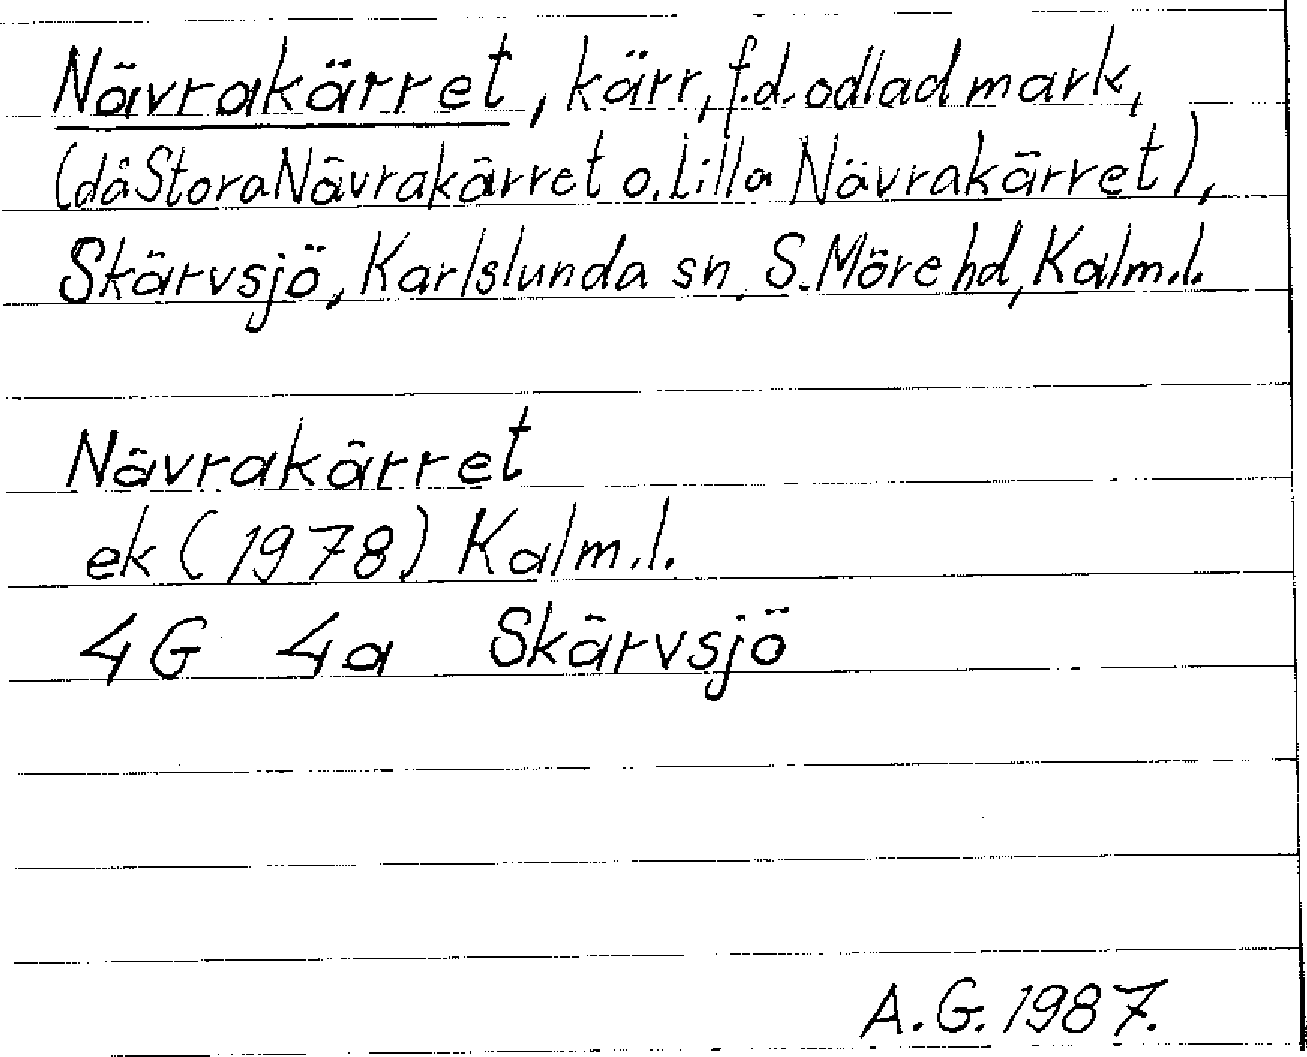 Nävrakärret, kärr, f.d. odlad mark,
(då Stora Nävrakärret o. Lilla Nävrakärret),
Skärvsjö, Karlslunda sn, S. Möre hd, Kalm.l.
Nävrakärret
ek (1978) Kalm.l.
4G 4a Skärvsjö
A.G. 1987.